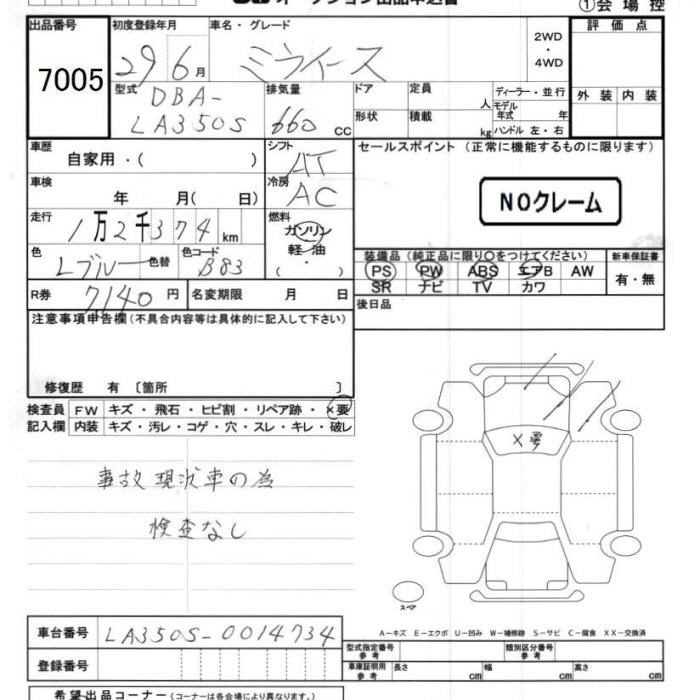 オークション出品申込書
①会場控
出品番号 初度登録年月 車名・グレード 評価点
7005 29 6月 ミライース 2WD・4WD
型式 排気量 ドア 定員 ディーラー・並行 外装 内装
DBA- 人 モデル年式 年
LA350S 660 cc 形状 積載 kg ハンドル 左・右
車歴 シフト セールスポイント (正常に機能するものに限ります)
自家用・( ) AT
車検 冷房
年 月( 日) AC NOクレーム
走行 燃料
1万2千374km ガソリン
色 色替 色コード 軽・油 装備品(純正品に限り○をつけてください) 新車保証書
Lブルー B83 ・( ) PS PW ABS エアB AW 有・無
SR ナビ TV カワ
R券 7140円 名変期限 月 日 後日品
注意事項申告欄(不具合内容等は具体的に記入して下さい)
修復歴 有 〔箇所 〕
検査員 FW キズ・飛石・ヒビ割・リペア跡・×要
記入欄 内装 キズ・汚レ・コゲ・穴・スレ・キレ・破レ
×要
事故現状車の為
検査なし
スペア
A-キズ E-エクボ U-凹み W-補修跡 S-サビ C-腐食 XX-交換済
車台番号 LA350S-0014734
型式指定番号 参考 類別区分番号 参考
登録番号 車庫証明用 参考 長さ cm 幅 cm 高さ cm
希望出品コーナー(コーナーは各会場により異なります。)